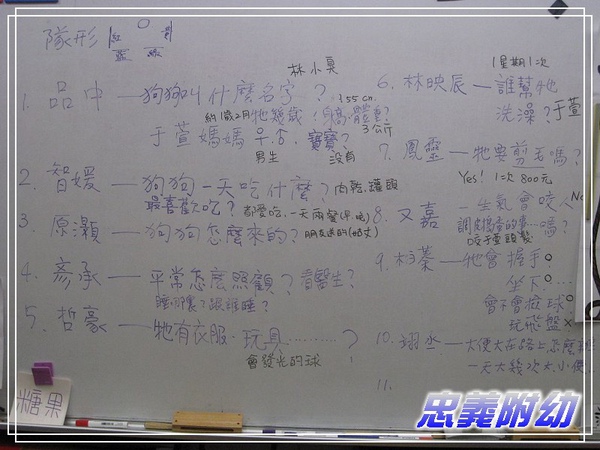 隊形 紅 黃
藍 綠
林小臭
1. 品中——狗狗叫什麼名字？
約1歲2月 牠幾歲 身高·體重？
35cm
于萱媽媽 寶寶？ 3公斤
男生 沒有
2. 智媛——狗狗一天吃什麼？肉乾.罐頭
最喜歡吃？都愛吃.一天兩餐
3. 原灝——狗狗怎麼來的？朋友送的
4. 彥承——平常怎麼照顧？看醫生？
睡哪裏？跟誰睡？
5. 哲豪——牠有衣服·玩具………？
會發光的球
1星期1次
6. 林映辰——誰幫牠
洗澡？于萱
7. 鳳靈——牠要剪毛嗎？
Yes! 1次800元
8. 又嘉——生氣會咬人 No
嗎？
咬于萱頭髮
9. 牠會握手○
坐下○…
會不會撿球○
玩飛盤×
10. 翊丞——大便大在路上怎麼辦
一天大幾次大.小便
11.
糖果
忠義附幼